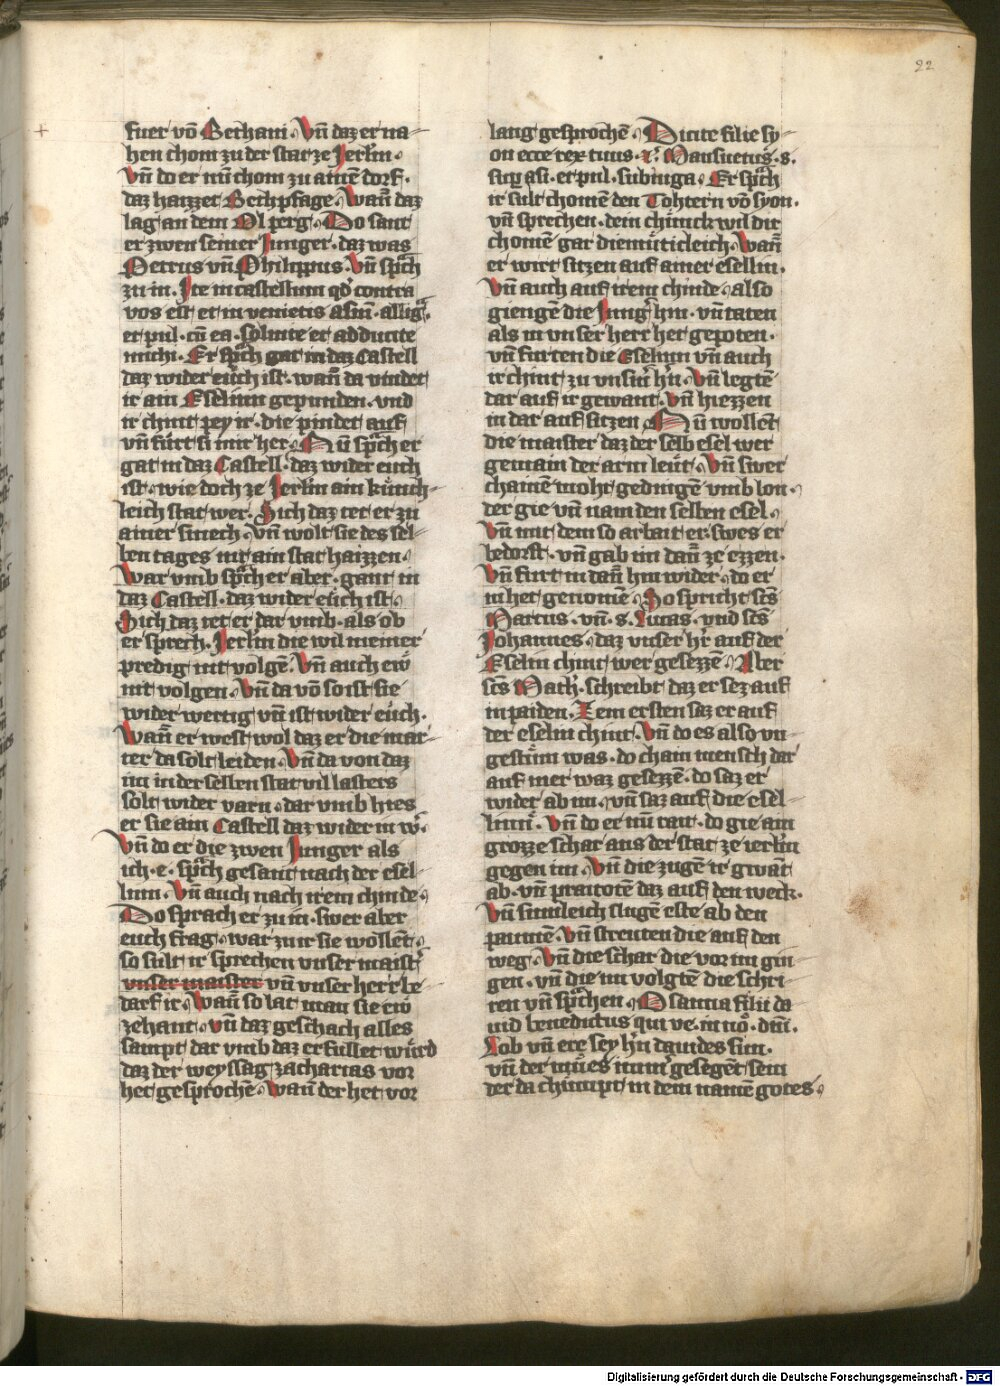 22
fuer vō Bethani. Vn̄ daz er na-
hen chom zu der stat ze Jerlm̄.
Vn̄ do er nu chom zu ainē dorf.
daz haizzet Bethphage. Wann̄ daz
lag an dem Ol perg. Do sant
er zwen seiner Junger. daz was
Petrus vn̄ Philippus. Vn̄ sp̄ch
zu in. Ite in castellum qd̄ contra
vos est et in venietis asin̄. alliḡ.
et pul. cū ea. soluite et adducite
michi. Er sp̄ch gat in daz Castell
daz wider eu̇ch ist. wann̄ da vindet
ir ain Eselinn gepunden. vnd
ir chint pey ir. die pindet auf
vn̄ fu̇rt si mir her. Nu sp̄ch er
gat in daz Castell. daz wider euch
ist. wie doch ze Jerlm̄ ain ku̇nch-
leich stat wer. Sich daz tet er zu
ainer smech. Vn̄ wolt sie des sel-
ben tages nit ain stat haizzen.
War vmb sp̄ch er aber. gant in
daz Castell. daz wider eu̇ch ist.
Sich daz tet er dar vmb. als ob
er sprech. Jerlm̄ die wil meiner
predig nit volgē. Vn̄ auch ew̄
nit volgen. Vn̄ da vō so ist sie
wider wertig vn̄ ist wider eu̇ch.
Wann̄ er west wol daz er die mar-
ter da solt leiden. Vn̄ da von daz
im in der selben stat vil lasters
solt wider varn. dar vmb hies
er sie ain Castell daz wider in w̄.
Vn̄ do er die zwen Junger als
ich. e. sp̄ch gesant nach der esel-
linn. Vn̄ auch nach irem chinde.
Do sprach er zu in. swer aber
euch frag. war zu ir sie wollet.
so sult ir sprechen vnser maist̄
vnser maister vn̄ vnser herr be
darf ir. Wann̄ so lat man sie ew̄
zehant. vn̄ daz geschach alles
sampt dar vmb daz erfullet wu̇rd
daz der weyssag zacharias vor
het gesprochē. Wann̄ der het vor
lang gesprochē. Dicite filie sy-
on ecce rex tuus. Mansuetus. s.
sup̄ asi. et pul. subiuga. Er sp̄ch
ir sult chomē den Tohtern vō syon.
vn̄ sprechen. dein chu̇nick wil dir
chomē gar diemu̇ticleich. Wann̄
er wirt sitzen auf ainer esellin.
Vn̄ auch auf irem chinde. also
giengē die Junḡ hin. vn̄ taten
als in vnser herr het gepoten.
vn̄ furten die Eselinn vn̄ auch
ir chint zu vnsm̄ hn̄. Vn̄ legtē
dar auf ir gewant. Vn̄ hiezzen
in dar auf sitzen. Nu wollēt
die maister daz der selb esel wer
gemain der arm leu̇t. Vn̄ swer
chainē moht gedingē vmb lon.
der gie vn̄ nam den selben esel.
Vn̄ mit dem so arbait er. swes er
bedorft. vn̄ gab im dann̄ ze ezzen.
Vn̄ furt in dann̄ hin wider. do er
in het genomē. So spricht scs̄
Marcus. vn̄. s. Lucas. vnd scs̄
Johannes. daz vnser hr̄ auf der
Eselin chint wer gesezzē. Aber
scs̄ Math̄. schreibt daz er sez auf
in paiden. Zem ersten saz er auf
der eselin chint. Vn̄ do es also vn
gestu̇m was. do chain mensch dar
auf mer waz gesezzē. do saz er
wider ab im. vn̄ saz auf die esel-
linn̄. Vn̄ do er nu rait. do gie ain
grozze schar aus der stat ze ierlm̄
gegen im. Vn̄ die zugē ir gwāt
ab. vn̄ praitotē daz auf den weck.
Vn̄ sumleich slugē este ab den
paumē. Vn̄ streuten die auf den
weg. Vn̄ die schar die vor im gin
gen. vn̄ die im volgtē die schri-
ren vn̄ sp̄chen. Osanna filii da
uid benedictus qui ve. in nō. dn̄i.
Lob vn̄ ere sey hn̄ dauides sun.
vn̄ der mu̇es nu gesegēt sein
der da chumpt in dem namē gotes.
Digitalisierung gefördert durch die Deutsche Forschungsgemeinschaft - DFG